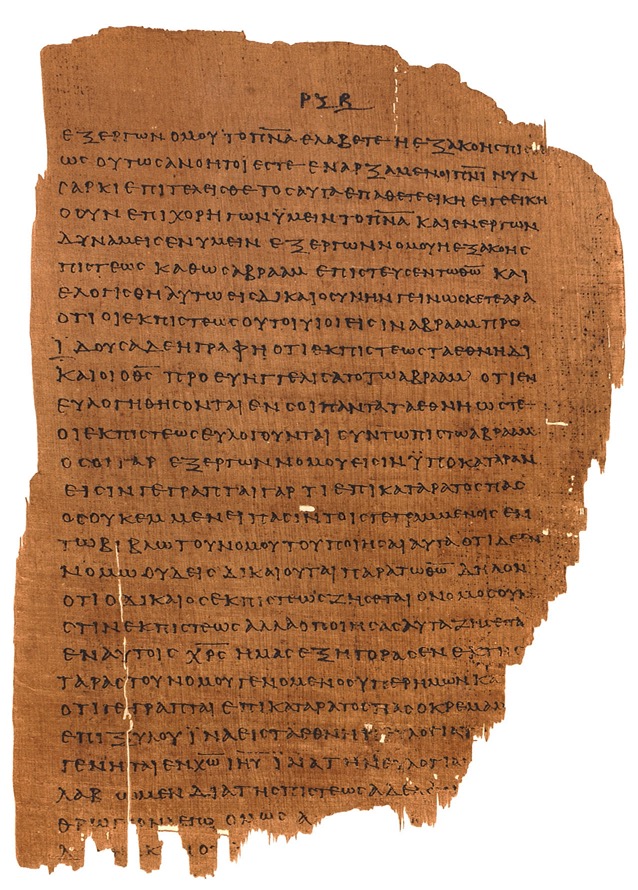 ΡΞΒ
ΕΞ ΕΡΓΩΝ ΟΜΟΥ ΤΟ Π̅Ν̅Α̅ ΕΛΑΒΕΤΕ Η ΕΞ ΑΚΟΗϹ ΠΙϹ
ΩϹ ΟΥΤΩϹ ΑΝΟΗΤΟΙ ΕϹΤΕ ΕΝΑΡΞΑΜΕΝΟΙ Π̅Ν̅Ι̅ ΝΥΝ
ϹΑΡΚΙ ΕΠΙΤΕΛΕΙϹΘΕ ΤΟϹΑΥΤΑ ΕΠΑΘΕΤΕ ΕΙΚΗ ΕΙ ΓΕ ΕΙΚΗ
Ο ΟΥΝ ΕΠΙΧΟΡΗΓΩΝ ΫΜΕΙΝ ΤΟ Π̅Ν̅Α̅ ΚΑΙ ΕΝΕΡΓΩΝ
ΔΥΝΑΜΕΙϹ ΕΝ ΥΜΕΙΝ ΕΞ ΕΡΓΩΝ ΝΟΜΟΥ Η ΕΞ ΑΚΟΗϹ
ΠΙϹΤΕΩϹ ΚΑΘΩϹ ΑΒΡΑΑΜ ΕΠΙϹΤΕΥϹΕΝ ΤΩ Θ̅Ω̅ ΚΑΙ
ΕΛΟΓΙϹΘΗ ΑΥΤΩ ΕΙϹ ΔΙΚΑΙΟϹΥΝΗΝ ΓΕΙΝΩϹΚΕΤΕ ΑΡΑ
ΟΤΙ ΟΙ ΕΚ ΠΙϹΤΕΩϹ ΟΥΤΟΙ ΥΙΟΙ ΕΙϹΙΝ ΑΒΡΑΑΜ ΠΡΟ
ΙΔΟΥϹΑ ΔΕ Η ΓΡΑΦΗ ΟΤΙ ΕΚ ΠΙϹΤΕΩϹ ΤΑ ΕΘΝΗ ΔΙ
ΚΑΙΟΙ Ο Θ̅Ϲ̅ ΠΡΟΕΥΗΓΓΕΛΙϹΑΤΟ ΤΩ ΑΒΡΑΑΜ ΟΤΙ ΕΝ
ΕΥΛΟΓΗΘΗϹΟΝΤΑΙ ΕΝ ϹΟΙ ΠΑΝΤΑ ΤΑ ΕΘΝΗ ΩϹΤΕ
ΟΙ ΕΚ ΠΙϹΤΕΩϹ ΕΥΛΟΓΟΥΝΤΑΙ ϹΥΝ ΤΩ ΠΙϹΤΩ ΑΒΡΑΑΜ
ΟϹΟΙ ΓΑΡ ΕΞ ΕΡΓΩΝ ΝΟΜΟΥ ΕΙϹΙΝ ΫΠΟ ΚΑΤΑΡΑΝ
ΕΙϹΙΝ ΓΕΓΡΑΠΤΑΙ ΓΑΡ ΤΙ ΕΠΙΚΑΤΑΡΑΤΟϹ ΠΑϹ
ΟϹ ΟΥΚ ΕΜΜΕΝΕΙ ΠΑϹΙΝ ΤΟΙϹ ΓΕΓΡΑΜΜΕΝΟΙϹ ΕΝ
ΤΩ ΒΙΒΛΙΩ ΤΟΥ ΝΟΜΟΥ ΤΟΥ ΠΟΙΗϹΑΙ ΑΥΤΑ ΟΤΙ ΔΕ ΕΝ
ΝΟΜΩ ΟΥΔΕΙϹ ΔΙΚΑΙΟΥΤΑΙ ΠΑΡΑ ΤΩ Θ̅Ω̅ ΔΗΛΟΝ
ΟΤΙ Ο ΔΙΚΑΙΟϹ ΕΚ ΠΙϹΤΕΩϹ ΖΗϹΕΤΑΙ Ο ΝΟΜΟϹ ΟΥΚ
ϹΤΙΝ ΕΚ ΠΙϹΤΕΩϹ ΑΛΛΑ Ο ΠΟΙΗϹΑϹ ΑΥΤΑ ΖΗϹΕΤΑΙ
ΕΝ ΑΥΤΟΙϹ Χ̅Ρ̅Ϲ̅ ΗΜΑϹ ΕΞΗΓΟΡΑϹΕΝ ΕΚ ΤΗϹ
ΤΑΡΑϹ ΤΟΥ ΝΟΜΟΥ ΓΕΝΟΜΕΝΟϹ ΥΠΕΡ ΗΜΩΝ ΚΑ
ΟΤΙ ΓΕΓΡΑΠΤΑΙ ΕΠΙΚΑΤΑΡΑΤΟϹ ΠΑϹ Ο ΚΡΕΜΑΜ
ΕΠΙ ΞΥΛΟΥ ΪΝΑ ΕΙϹ ΤΑ ΕΘΝΗ Η ΕΥΛΟΓΙΑ
ΓΕΝΗΤΑΙ ΕΝ Χ̅Ω̅ Ι̅Η̅Υ̅ ΪΝΑ ΤΗΝ ΕΥΛΟΓΙΑΝ
ΛΑΒ ΩΜΕΝ ΔΙΑ ΤΗϹ ΠΙϹΤΕΩϹ ΑΔΕΛΦΟΙ
ΘΡΩΠΟΝ ΛΕΓΩ ΟΜΩϹ Α